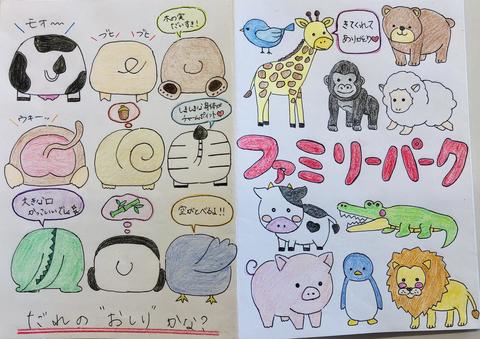 モオ〜
ブヒ
ブヒ
木の実
だいすき!
ウキーッ
しましまな身体が
チャームポイント♡
大きな口
かっこいいでしょ
空がとべるよ!!
だれの"おしり"かな?
きてくれて
ありがとう♡
ファミリーパーク